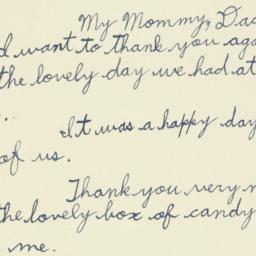 My Mommy, Dad
d want to thank you aga
the lovely day we had at
..
It was a happy day
of us.
Thank you very m
the lovely box of candy
me.